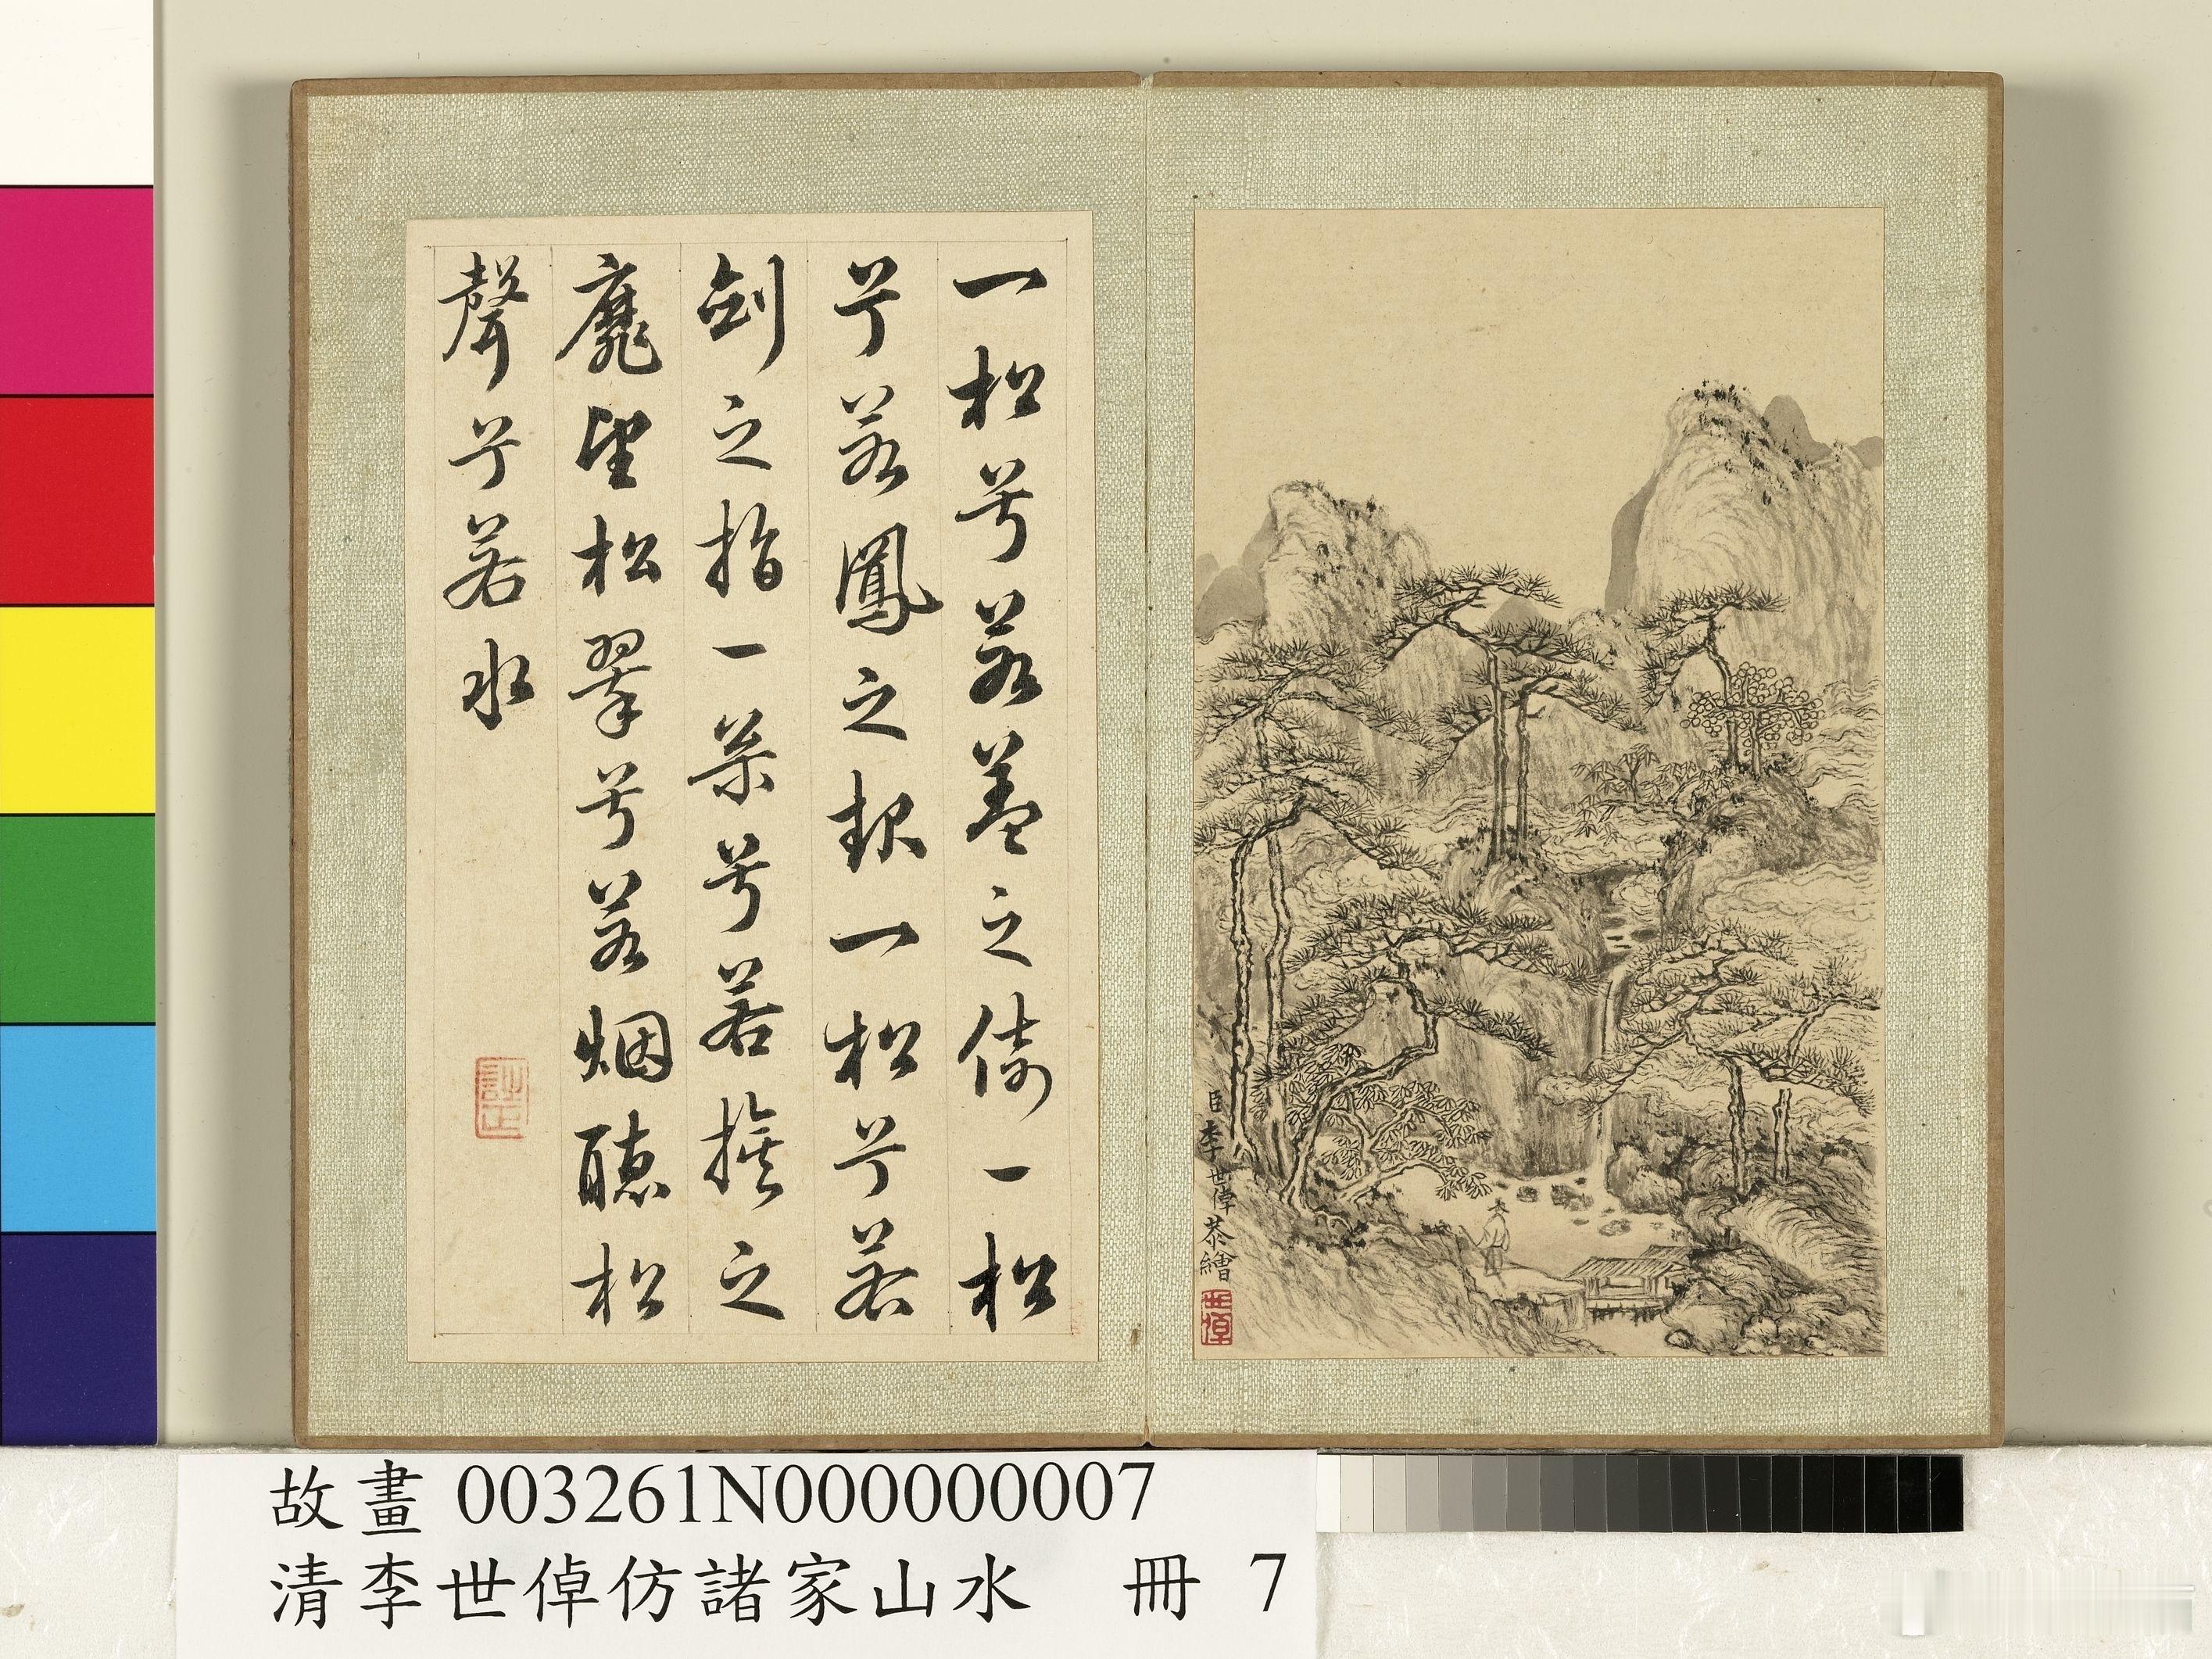 一松兮若蓋之倚一松
兮若鳳之一松兮若
劍之指一兮若之
麾望松翠兮若烟聽松
聲兮若水
臣李世倬恭繪
世倬
故畫 003261N000000007
清李世倬仿諸家山水 冊 7